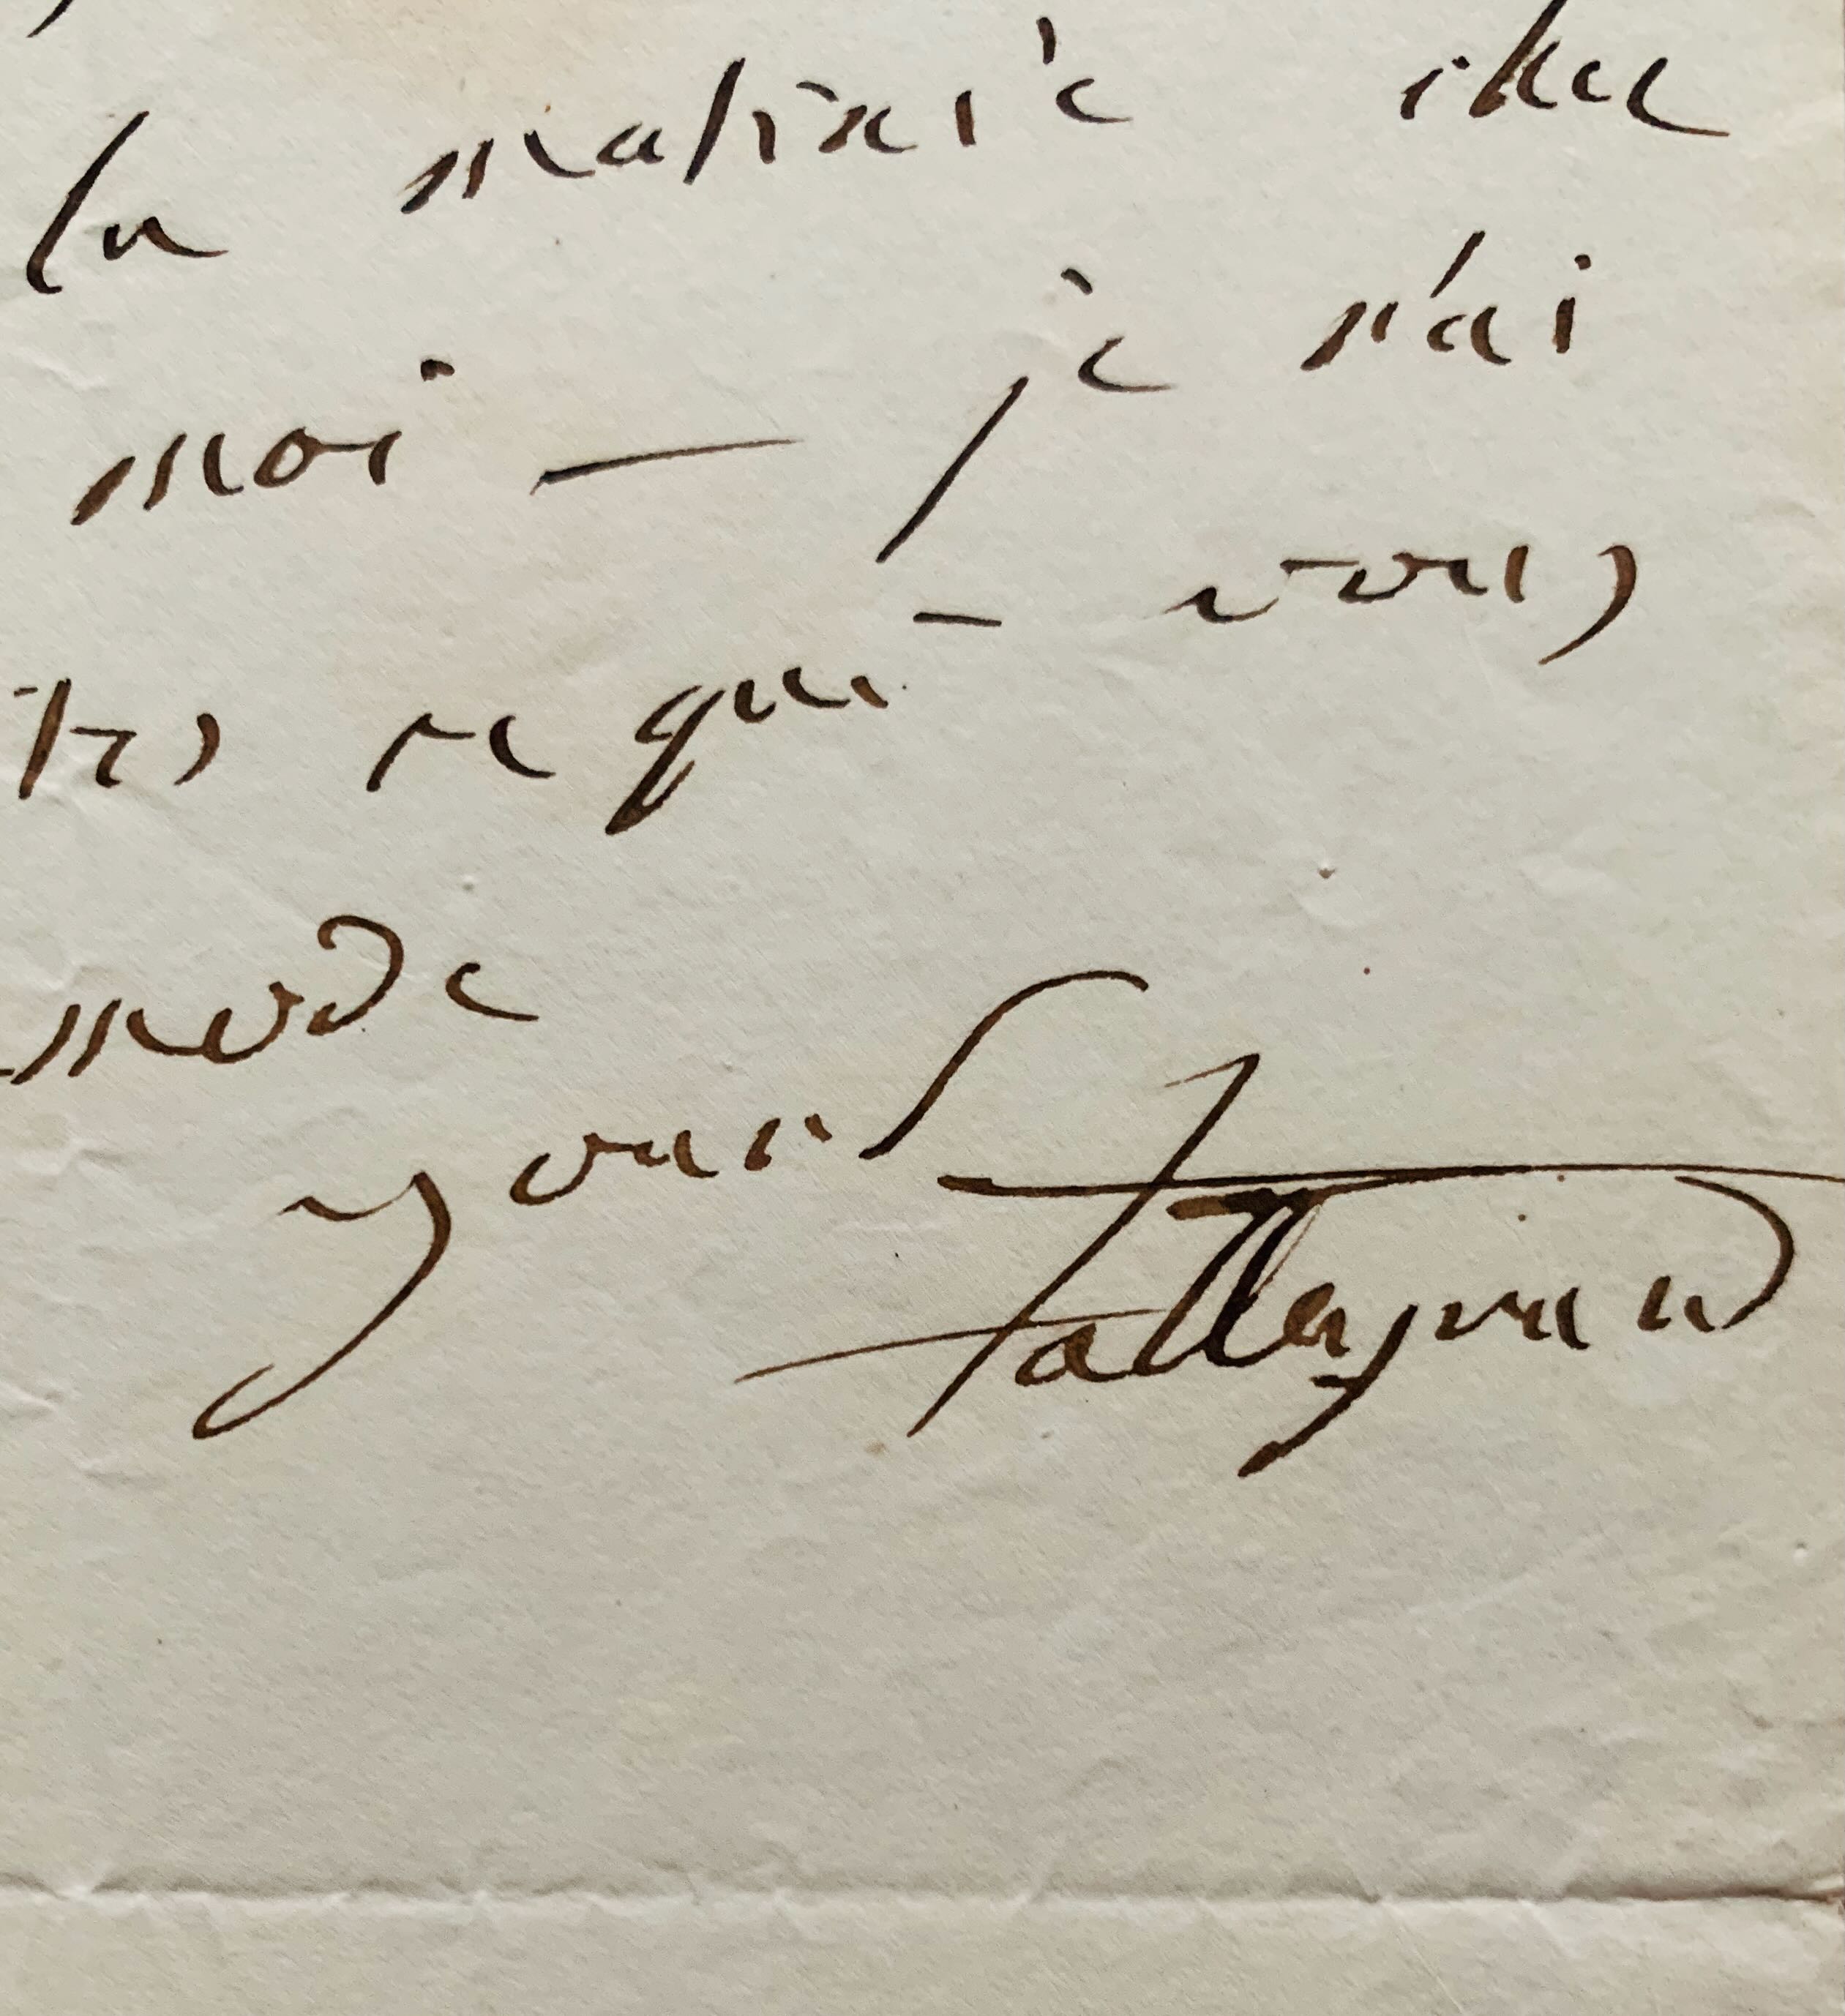 la matinée chez
moi — je n'ai
tes ce qui vous
mode
yours
talleyrand